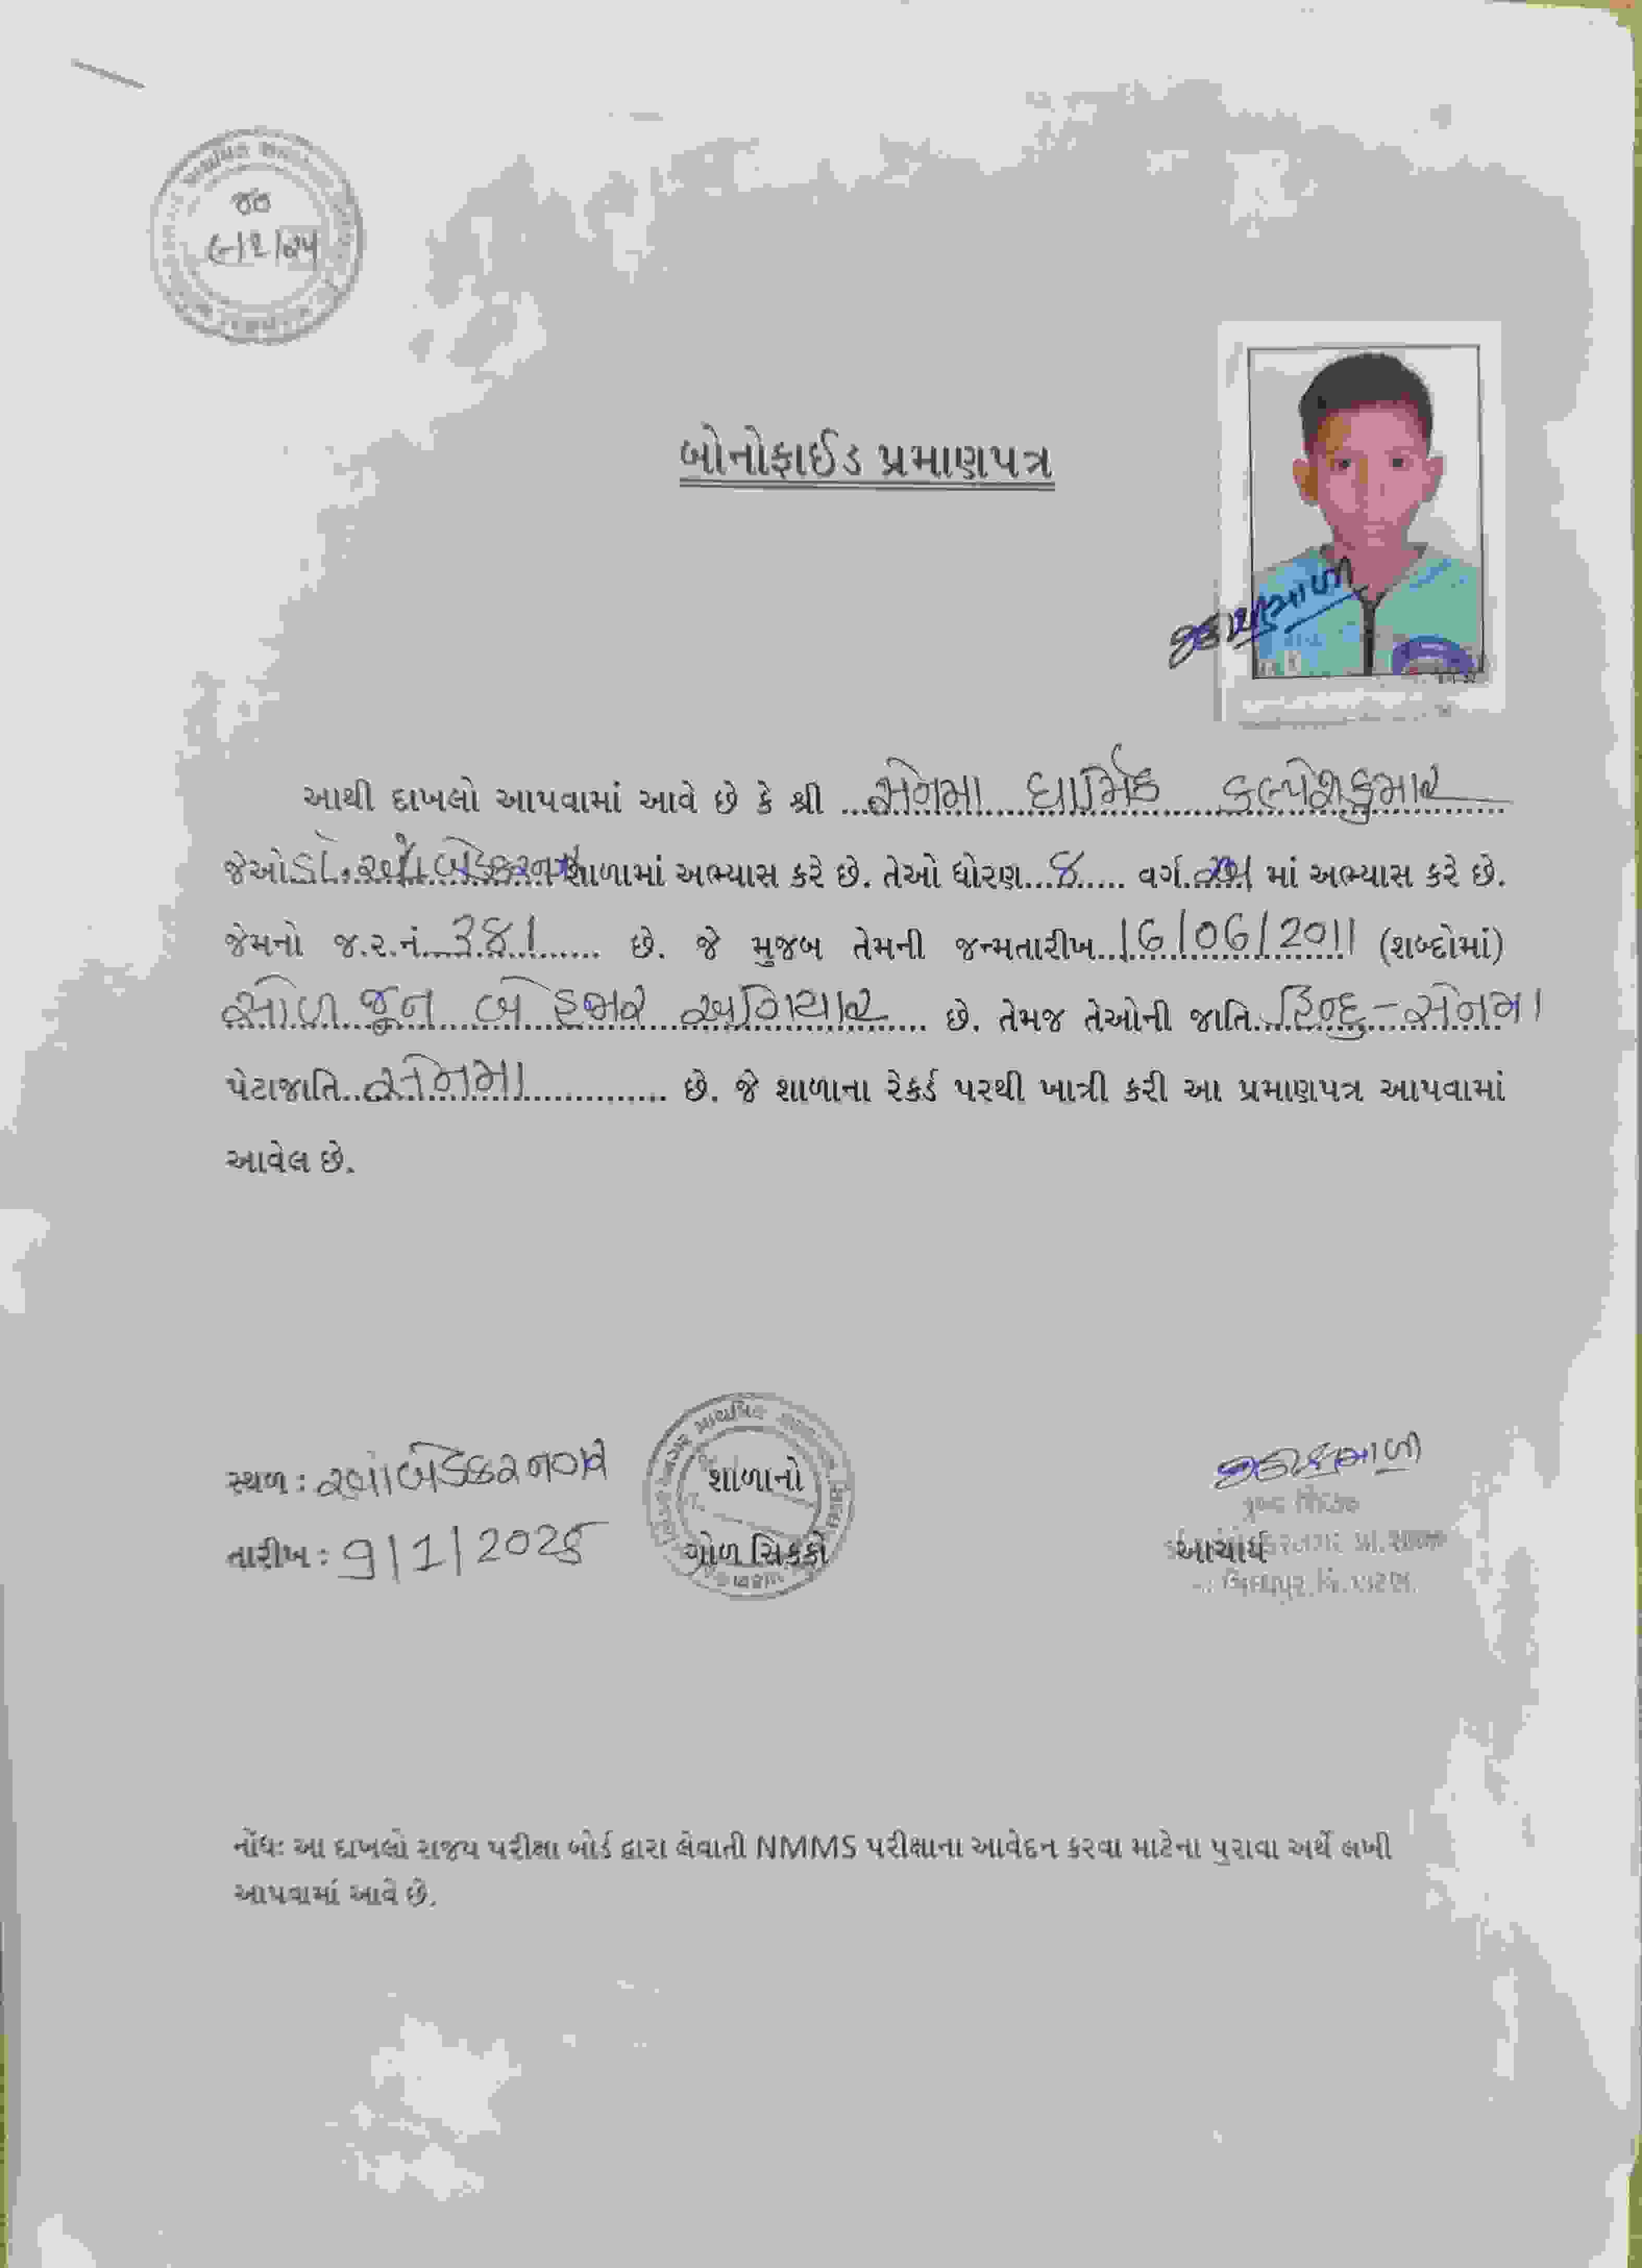 ૪૭
૯/૧/૨૫
બોનોફાઈડ પ્રમાણપત્ર
આથી દાખલો આપવામાં આવે છે કે શ્રી સેનમા ધાર્મિક કલ્પેશકુમાર
જેઓ ડૉ. આંબેડકરનગર શાળામાં અભ્યાસ કરે છે. તેઓ ધોરણ 8 વર્ગ માં અભ્યાસ કરે છે.
જેમનો જ.ર.નં. 381 છે. જે મુજબ તેમની જન્મતારીખ 16/06/2011 (શબ્દોમાં)
સોળ જૂન બે હજાર અગિયાર છે. તેમજ તેઓની જાતિ હિન્દુ-સેનમા
પેટાજાતિ સેનમા છે. જે શાળાના રેકર્ડ પરથી ખાત્રી કરી આ પ્રમાણપત્ર આપવામાં
આવેલ છે.
સ્થળ : આંબેડકરનગર
તારીખ : 9/1/2025
શાળાનો
ગોળ સિક્કો
આચાર્ય
નોંધઃ આ દાખલો રાજ્ય પરીક્ષા બોર્ડ દ્વારા લેવાતી NMMS પરીક્ષાના આવેદન કરવા માટેના પુરાવા અર્થે લખી
આપવામાં આવે છે.